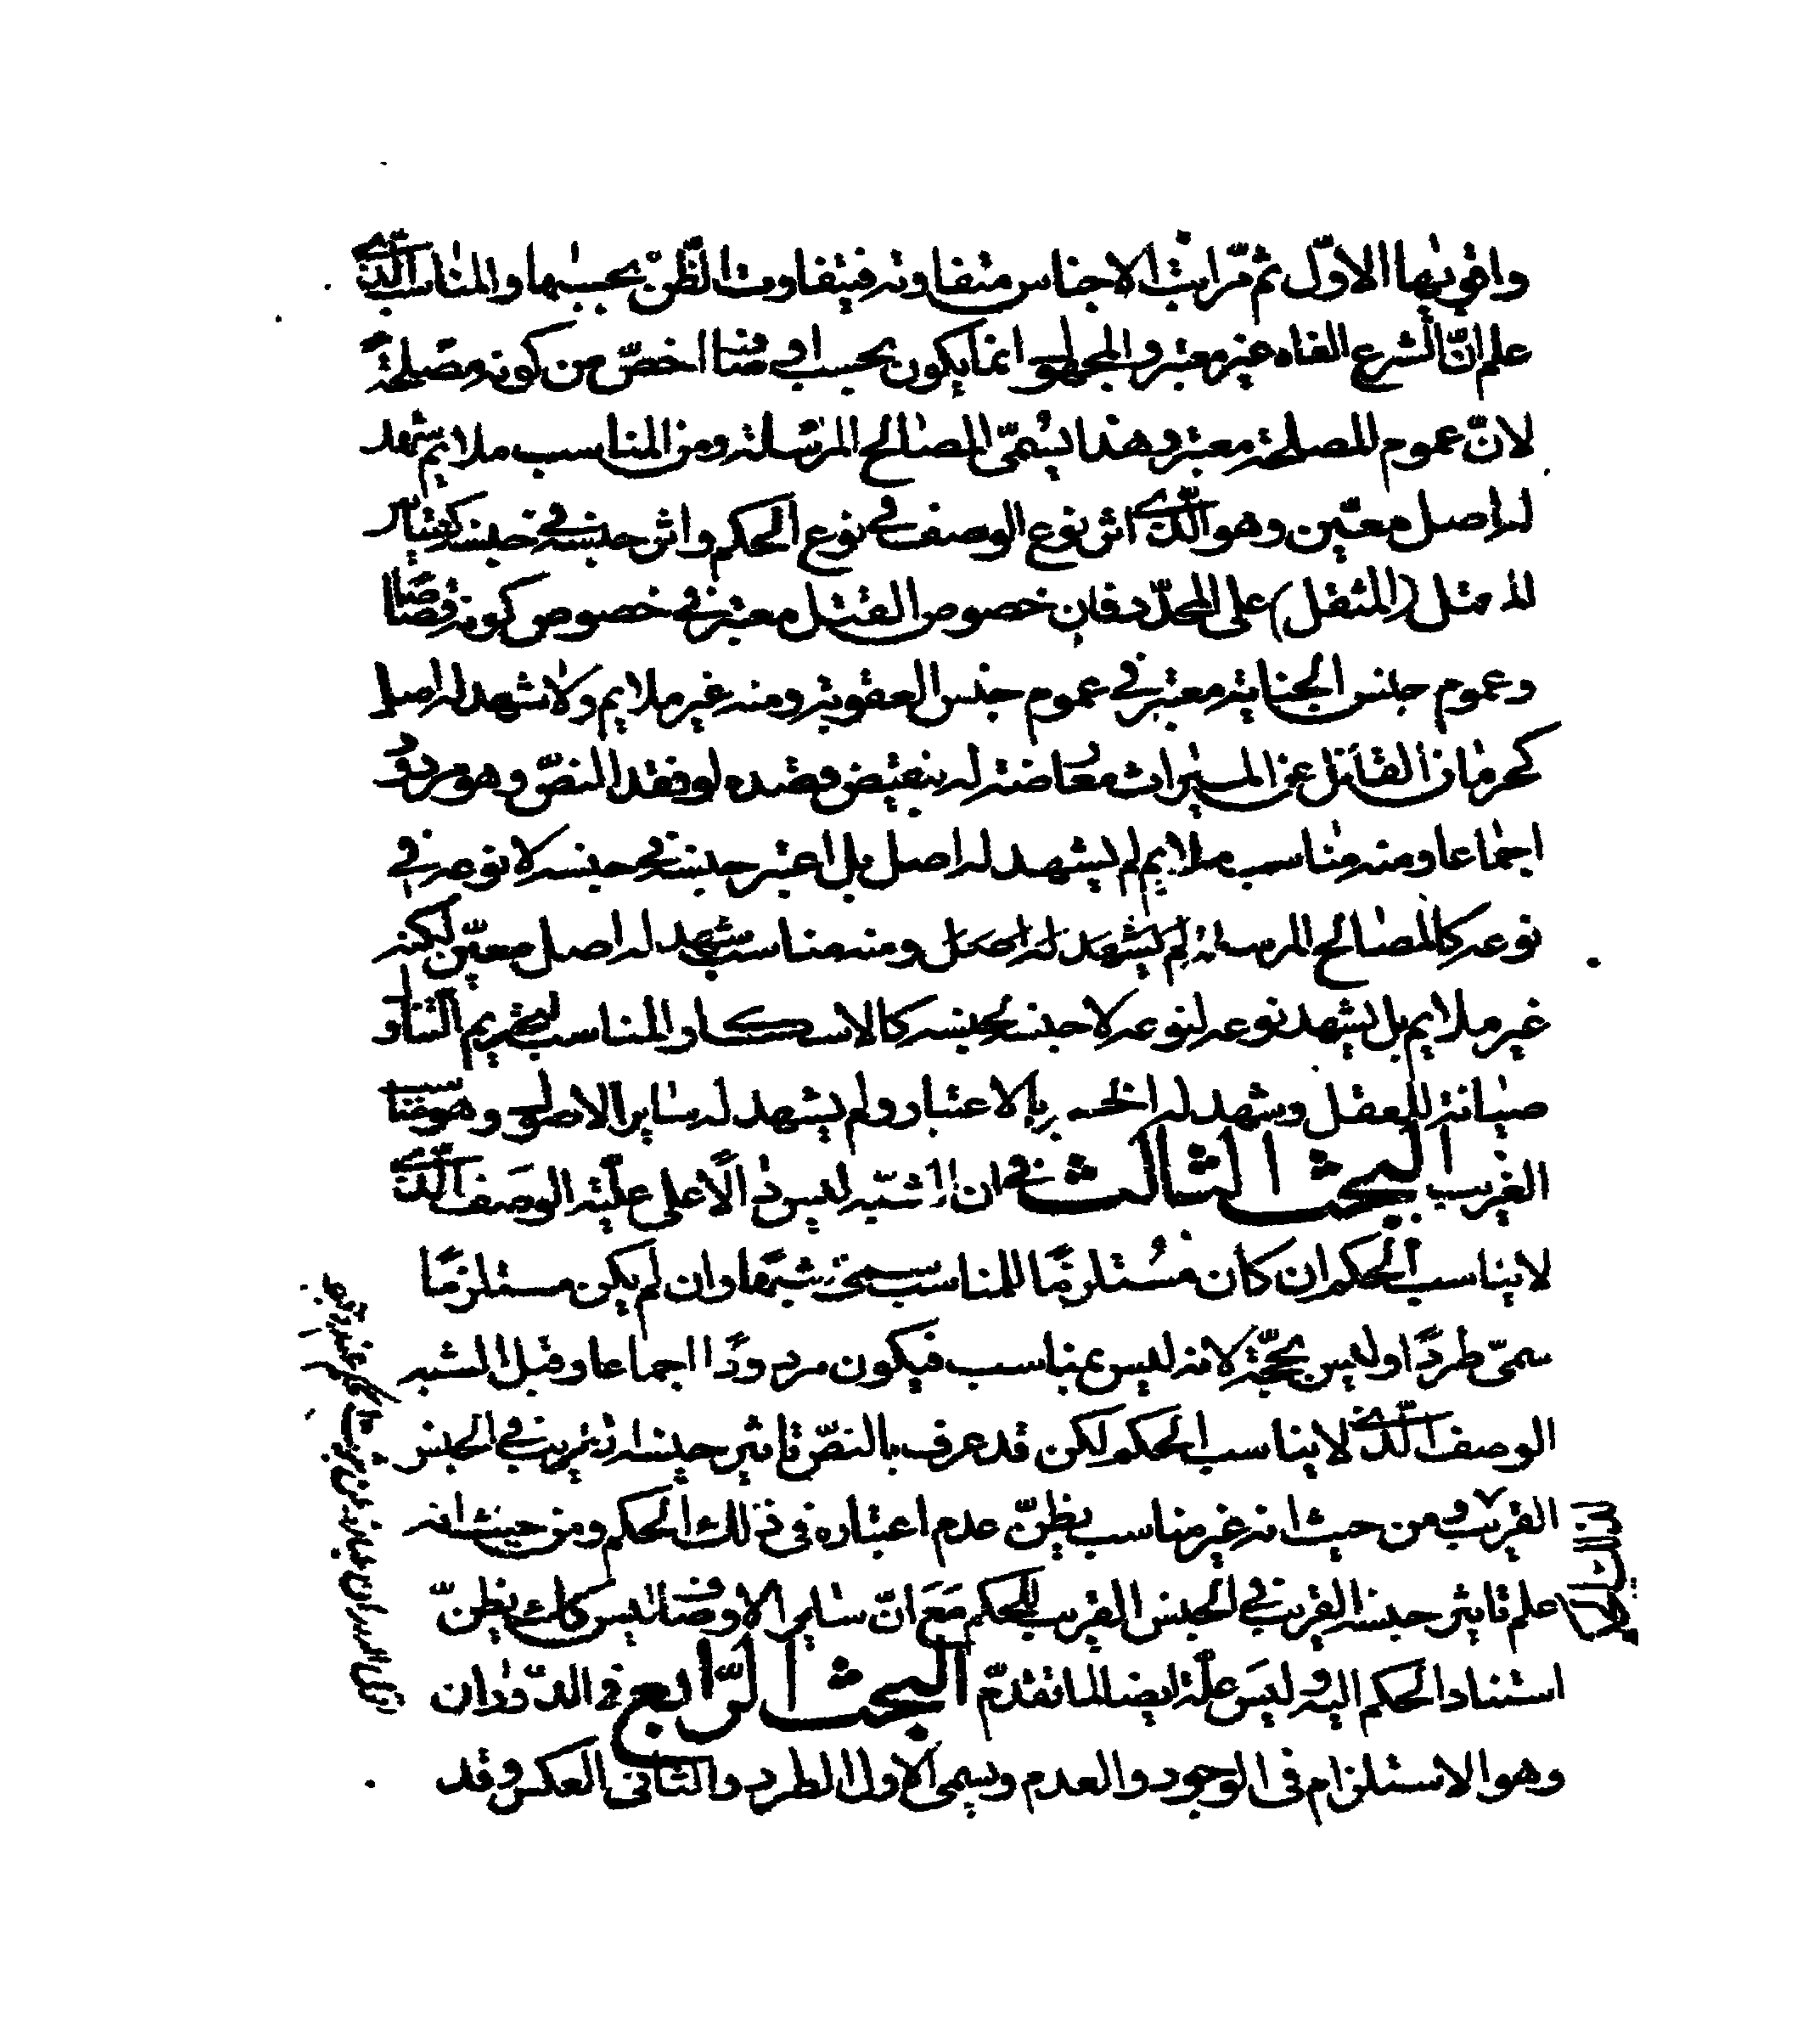 واقويها الاوّل ثم مّراتب الاجناس متفاوته فيتفاوت الظّن بحسبها والمناسب الّذى
علم انّ الشرع الغاه غير معتبر والمجهول انما يكون بحسب اوصاف اخصّ من كونه مصلحة
لانّ عموم المصلحة معتبر وهذا يسُمّى المصالح المرسَلة ومن المناسب ملايم شهد
له اصل معيّن وهو الّذى اثر نوع الوصف فى نوع الحكم واثر جنسه فى جنسه كقياس
المثقل على المحدّد فان خصوص القتل معتبر فى خصوص كونه قصاصا
وعموم جنس الجناية معتبر فى عموم جنس العقوبة ومنه غير ملايم ولا شهد له اصل
كحرمان القاتل عن الميراث معُارضة له بنقيض قصده لو فقد النصّ وهو مردود
اجماعا ومنه مناسب ملايم لم يشهد له اصل بل اعتبر جنسه فى جنسه لا نوعه فى
نوعه كالمصالح المرسلة لم يشهد له اصل ومنه مناسب شهد له اصل معيّن لكنه
غير ملايم بل يشهد نوعه لنوعه لا جنسه لجنسه كالاسكار المناسب لتحريم التناول
صيانة للعقل وشهد له الخمر بالاعتبار ولم يشهد له ساير الاصول وهو المناسب
الغريب البحث الثالث فى ان الشبه ليس دالّا على علّية الوصف الّذى
لا يناسب الحكم ان كان مسُتلزمًا للمناسب سمى شبهًا وان لم يكن مستلزمًا
سمىّ طردًا وليس بحجّة لانه ليس بمناسب فيكون مردودًا اجماعا وقيل الشبه
الوصف الّذى لا يناسب الحكم لكن قد عرف بالنصّ تاثير جنسه القريب فى الجنس
القريب ومن حيث انه غير مناسب يظنّ عدم اعتباره فى ذلك الحكم ومن حيث انه
علم تاثير جنسه القريب فى الجنس القريب للحكم مَعَ انّ ساير الاوصاف ليس كذلك يظنّ
استناد الحكم اليه وليسَ علّة ايضا لما تقدمّ البحث الرّابع فى الدّوران
وهو الاستلزام فى الوجود والعدم ويسمى الاول الطرد والثانى العكس وقد